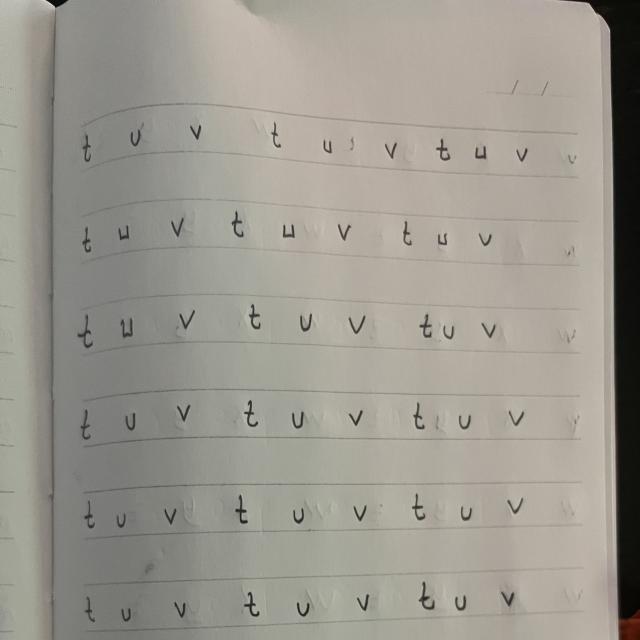 / /
t u v t u v t u v
t u v t u v t u v
t u v t u v t u v
t u v t u v t u v
t u v t u v t u v
t u v t u v t u v